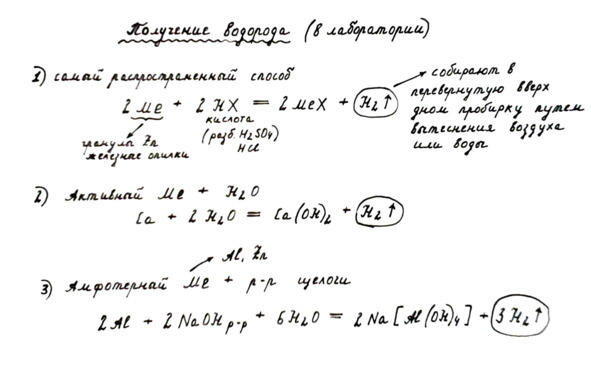 Получение водорода (в лаборатории)
1) самый распространенный способ
2 Me + 2 HX = 2 MeX + H₂↑
кислота
(разб. H₂SO₄)
HCl
гранулы Zn
железные опилки
собирают в
перевернутую вверх
дном пробирку путем
вытеснения воздуха
или воды
2) Активный Me + H₂O
Ca + 2 H₂O = Ca(OH)₂ + H₂↑
Al, Zn
3) Амфотерный Me + р-р щелочи
2 Al + 2 NaOH р-р + 6 H₂O = 2 Na[Al(OH)₄] + 3 H₂↑